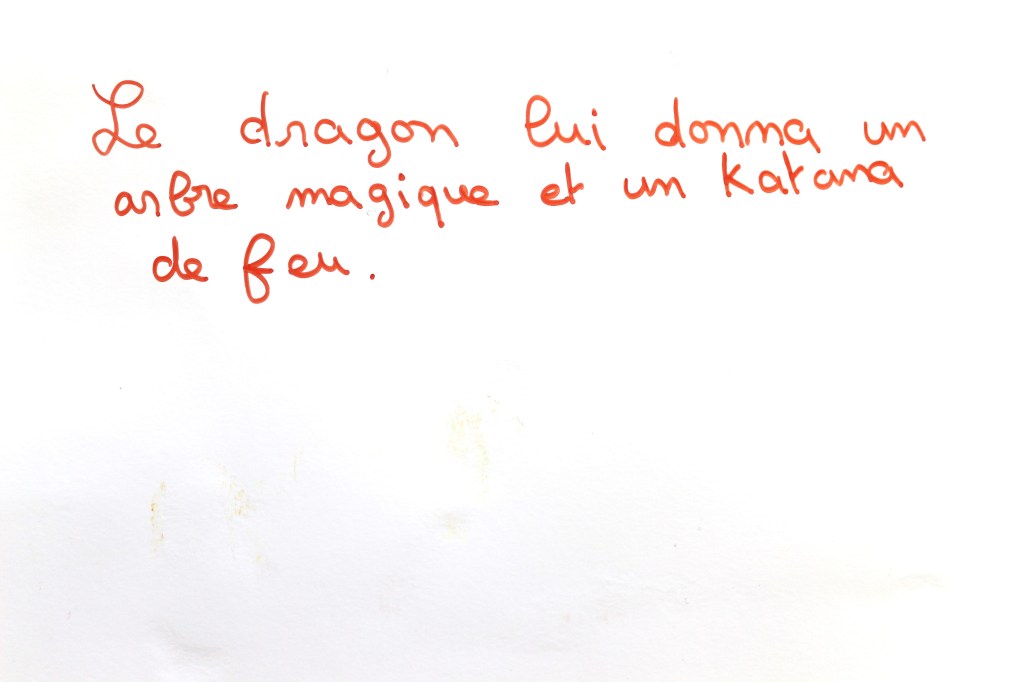 Le dragon lui donna un
arbre magique et un katana
de feu.